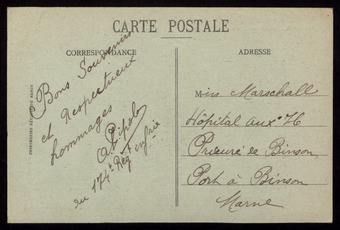 CARTE POSTALE
CORRESPONDANCE
ADRESSE
Bons Souvenirs
et Respectueux
hommages
du 174e Reg
Miss Marschall
Hôpital aux
Prieuré de Binson
Port à Binson
Marne